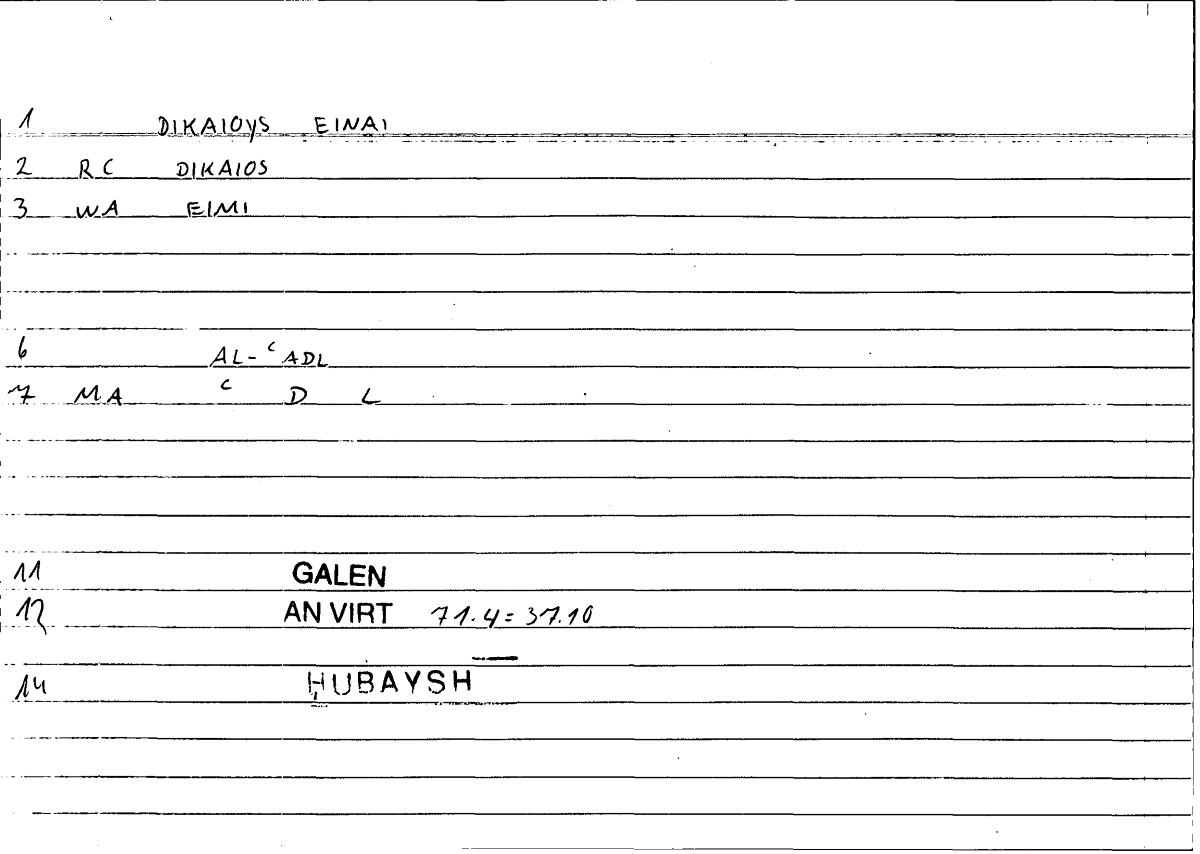 1 DIKAIOYS EINAI
2 RC DIKAIOS
3 WA EIMI
6 AL-ʿADL
7 MA ʿ D L
11 GALEN
12 AN VIRT 71.4=37.10
14 ḤUBAYSH